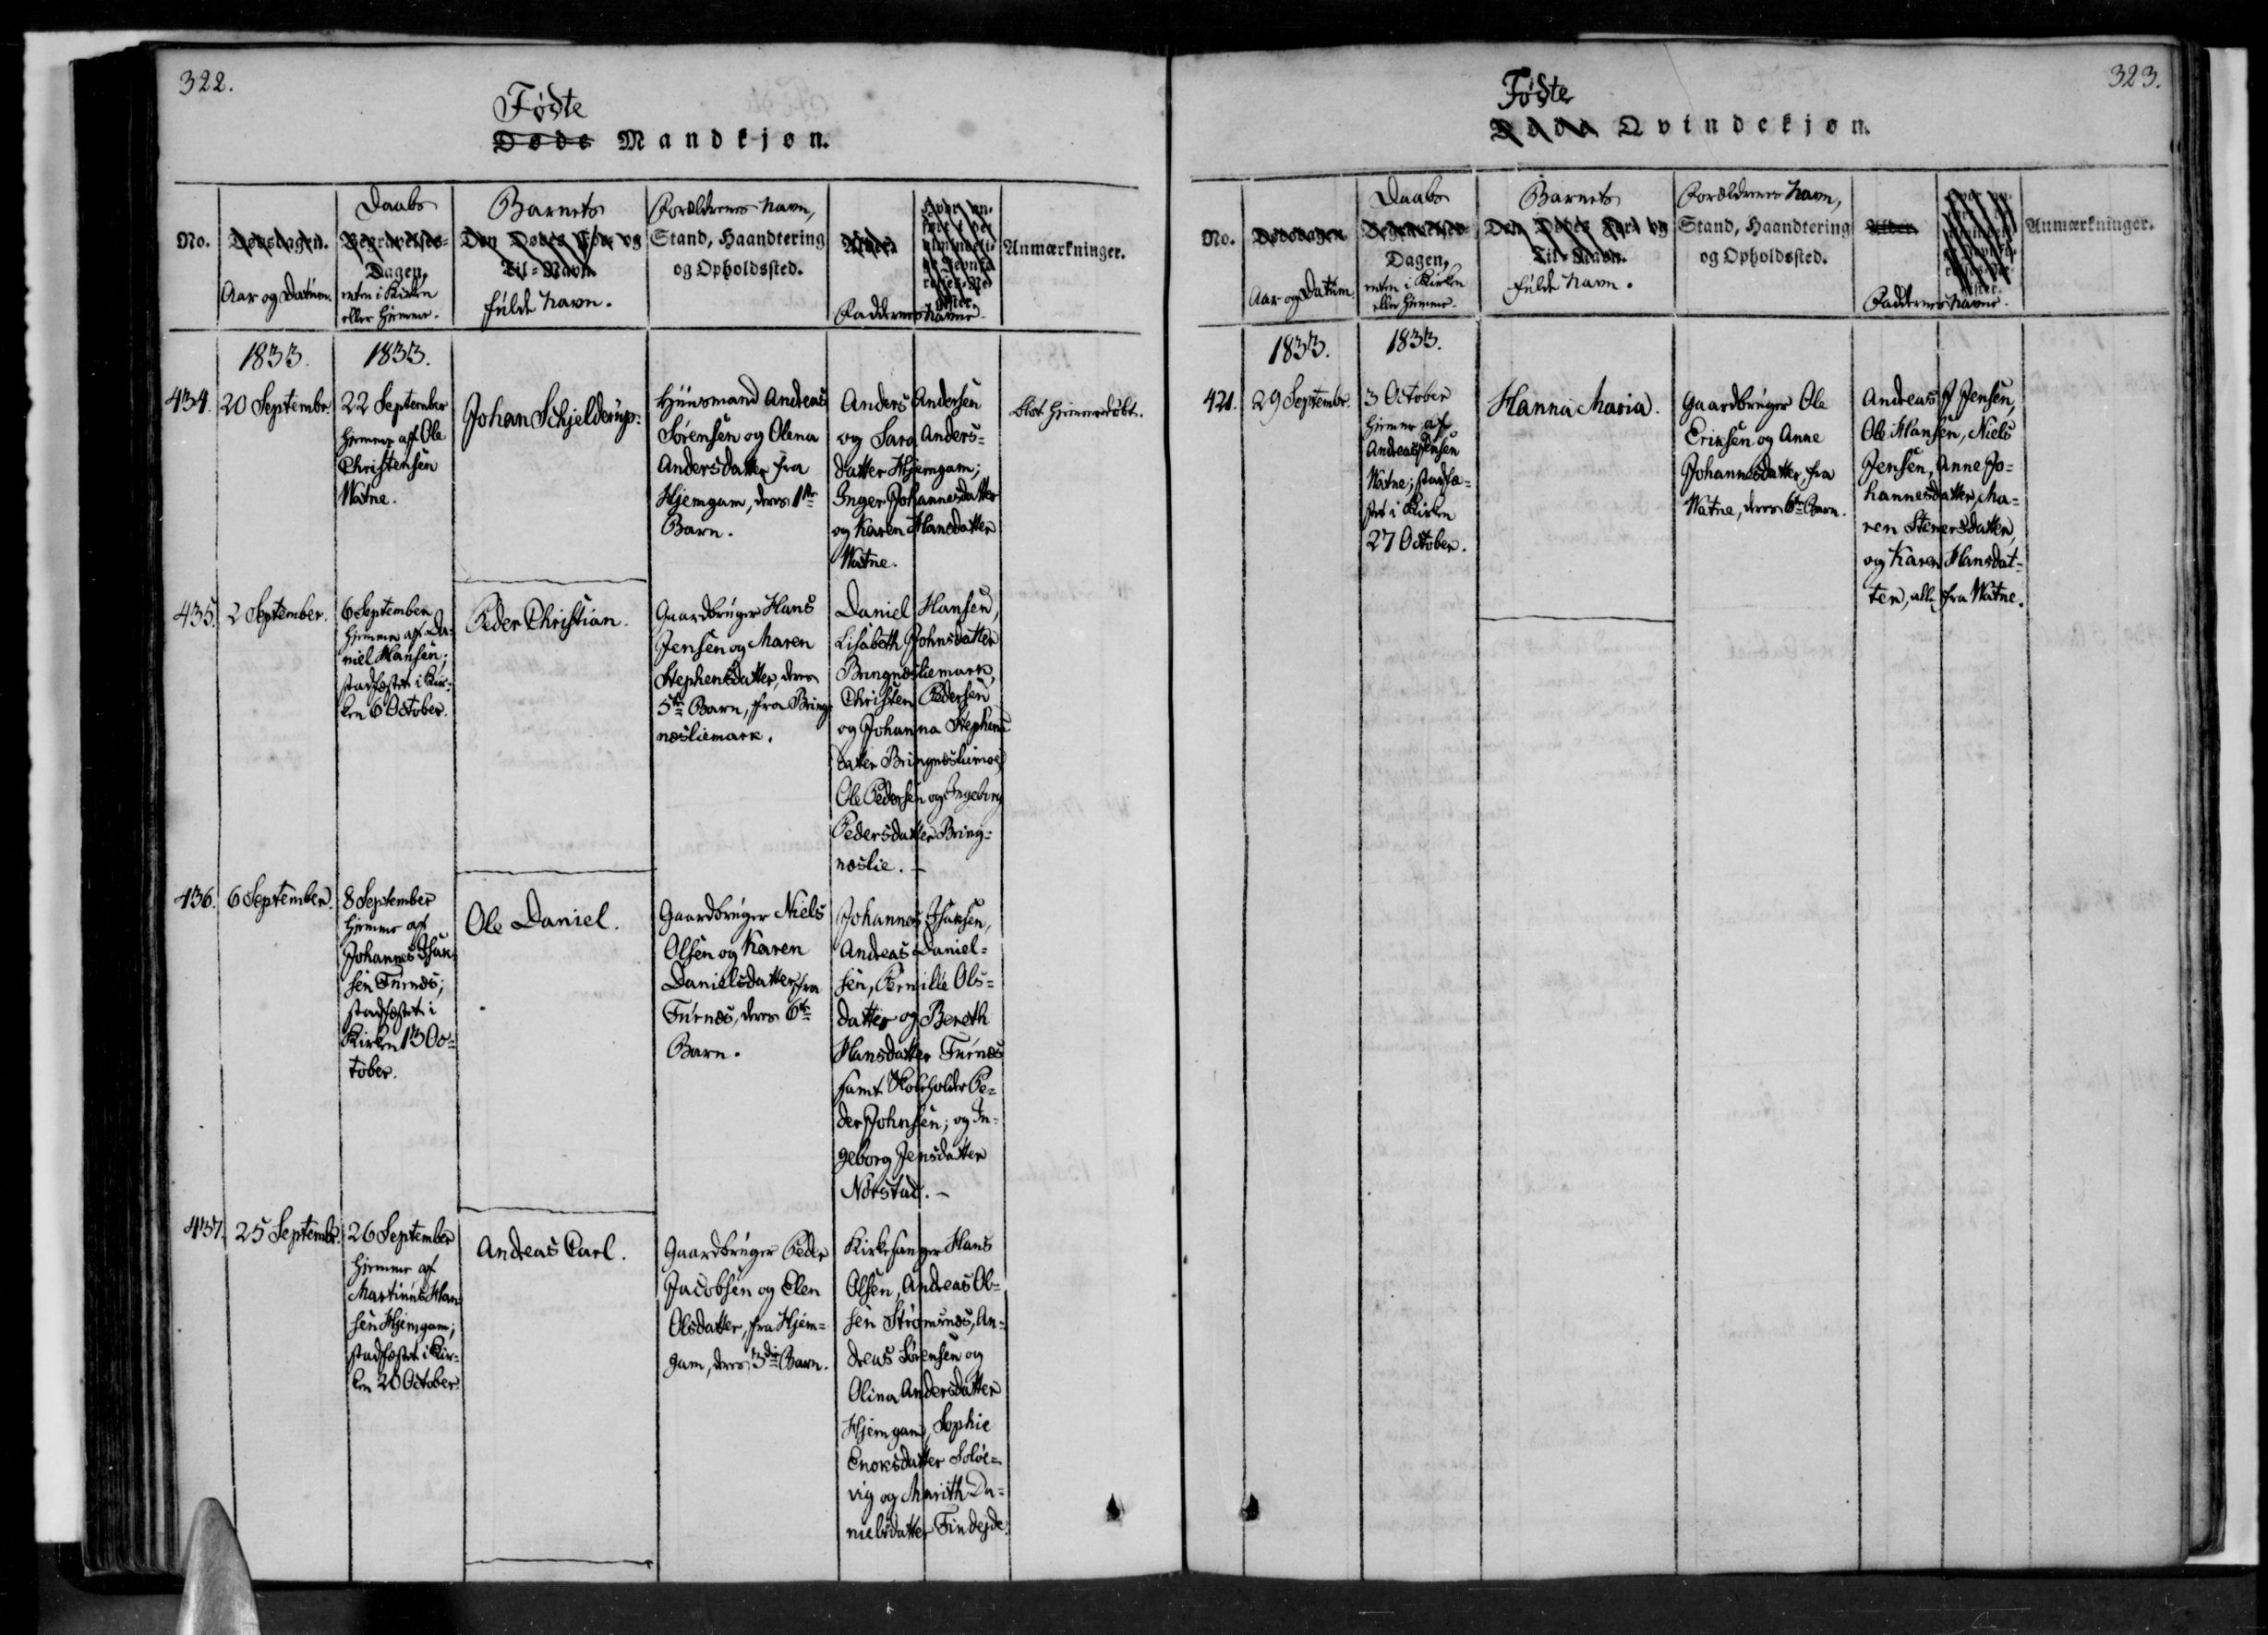 322.
Fødte
Døde Mandkjøn.
No.
Dødsdagen.
Aar og Datum.
Daabs
Begravelses-
Dagen,
enten i Kirken
eller hiemme.
Barnets
Den Dødes For og
Til-Navn.
fulde Navn.
Forældrenes Navn,
Stand, Haandtering
og Opholdssted.
Alder.
Faddernes Navne.
Anmærkninger.
1833.
1833.
434.
20 Septembr.
22 September
hiemme af Ole
Christensen
Watne.
Johan Schjelderup.
Huusmand Andreas
Sørensen og Olena
Andersdatter fra
Hjemgam, deres 1ste
Barn.
Anders Andersen
og Sara Anders-
datter Hjemgam;
Inger Johannesdatter
og Karen Hansdatter
Watne.
blot hjemmedøbt.
435.
2 September.
6 September
hiemme af Da-
niel Hansen;
stadfæstet i Kir-
ken 6 October.
Peder Christian.
Gaardbruger Hans
Jensen og Maren
Stephensdatter, deres
5te Barn, fra Bring-
næsliemark.
Daniel Hansen,
Lisabeth Johnsdatter
Bringnæsliemark,
Christen Pedersen
og Johanna Stephens-
datter Bringnæsliemoe,
Ole Pedersen og Ingeborg
Pedersdatter Bring-
næslie. -
436.
6 September.
8 September
hiemme af
Johannes Isak-
sen Furnæs;
stadfæstet i
Kirken 13 Oc-
tober.
Ole Daniel.
Gaardbruger Niels
Olsen og Karen
Danielsdatter, fra
Furnæs, deres 6te
Barn.
Johannes Isaksen,
Andreas Daniel-
sen, Pernille Ols-
datter og Bereth
Hansdatter Furnæs
samt Skoleholder Pe-
der Johnsen; og In-
geborg Jensdatter
Norstad. -
437.
25 Septembr.
26 September
hiemme af
Martinus Han-
sen Hjemgam;
stadfæstet i Kir-
ken 20 October
Andreas Carl.
Gaardbruger Peder
Jacobsen og Elen
Olsdatter, fra Hjem-
gam, deres 3die Barn.
Kirkesanger Hans
Olsen, Andreas Ol-
sen Strømsnæs, An-
dreas Sørensen og
Olina Andersdatter
Hjemgam, Sophie
Enoksdatter Soløe-
vig og Marith Da-
nielsdatter Findejde.
323.
Fødte
Døde Qvindekjøn.
No.
Dødsdagen
Aar og Datum.
Daabs
Begravelses-
Dagen,
enten i Kirken
eller hiemme.
Barnets
Den Dødes For og
Til-Navn.
fulde Navn.
Forældrenes Navn,
Stand, Haandtering
og Opholdssted.
Alder.
Faddernes Navne.
Anmærkninger.
1833.
1833.
421.
29 Septembr.
3 October
hiemme af
Andreas Jensen
Watne; stadfæ-
stet i Kirken
27 October.
Hanna Maria.
Gaardbruger Ole
Eriksen og Anne
Johannesdatter, fra
Watne, deres 6te Barn.
Andreas J Jensen,
Ole Hansen, Niels
Jensen, Anne Jo-
hannesdatter, Ma-
ren Stenersdatter,
og Karen Hansdat-
ter, alle fra Watne.